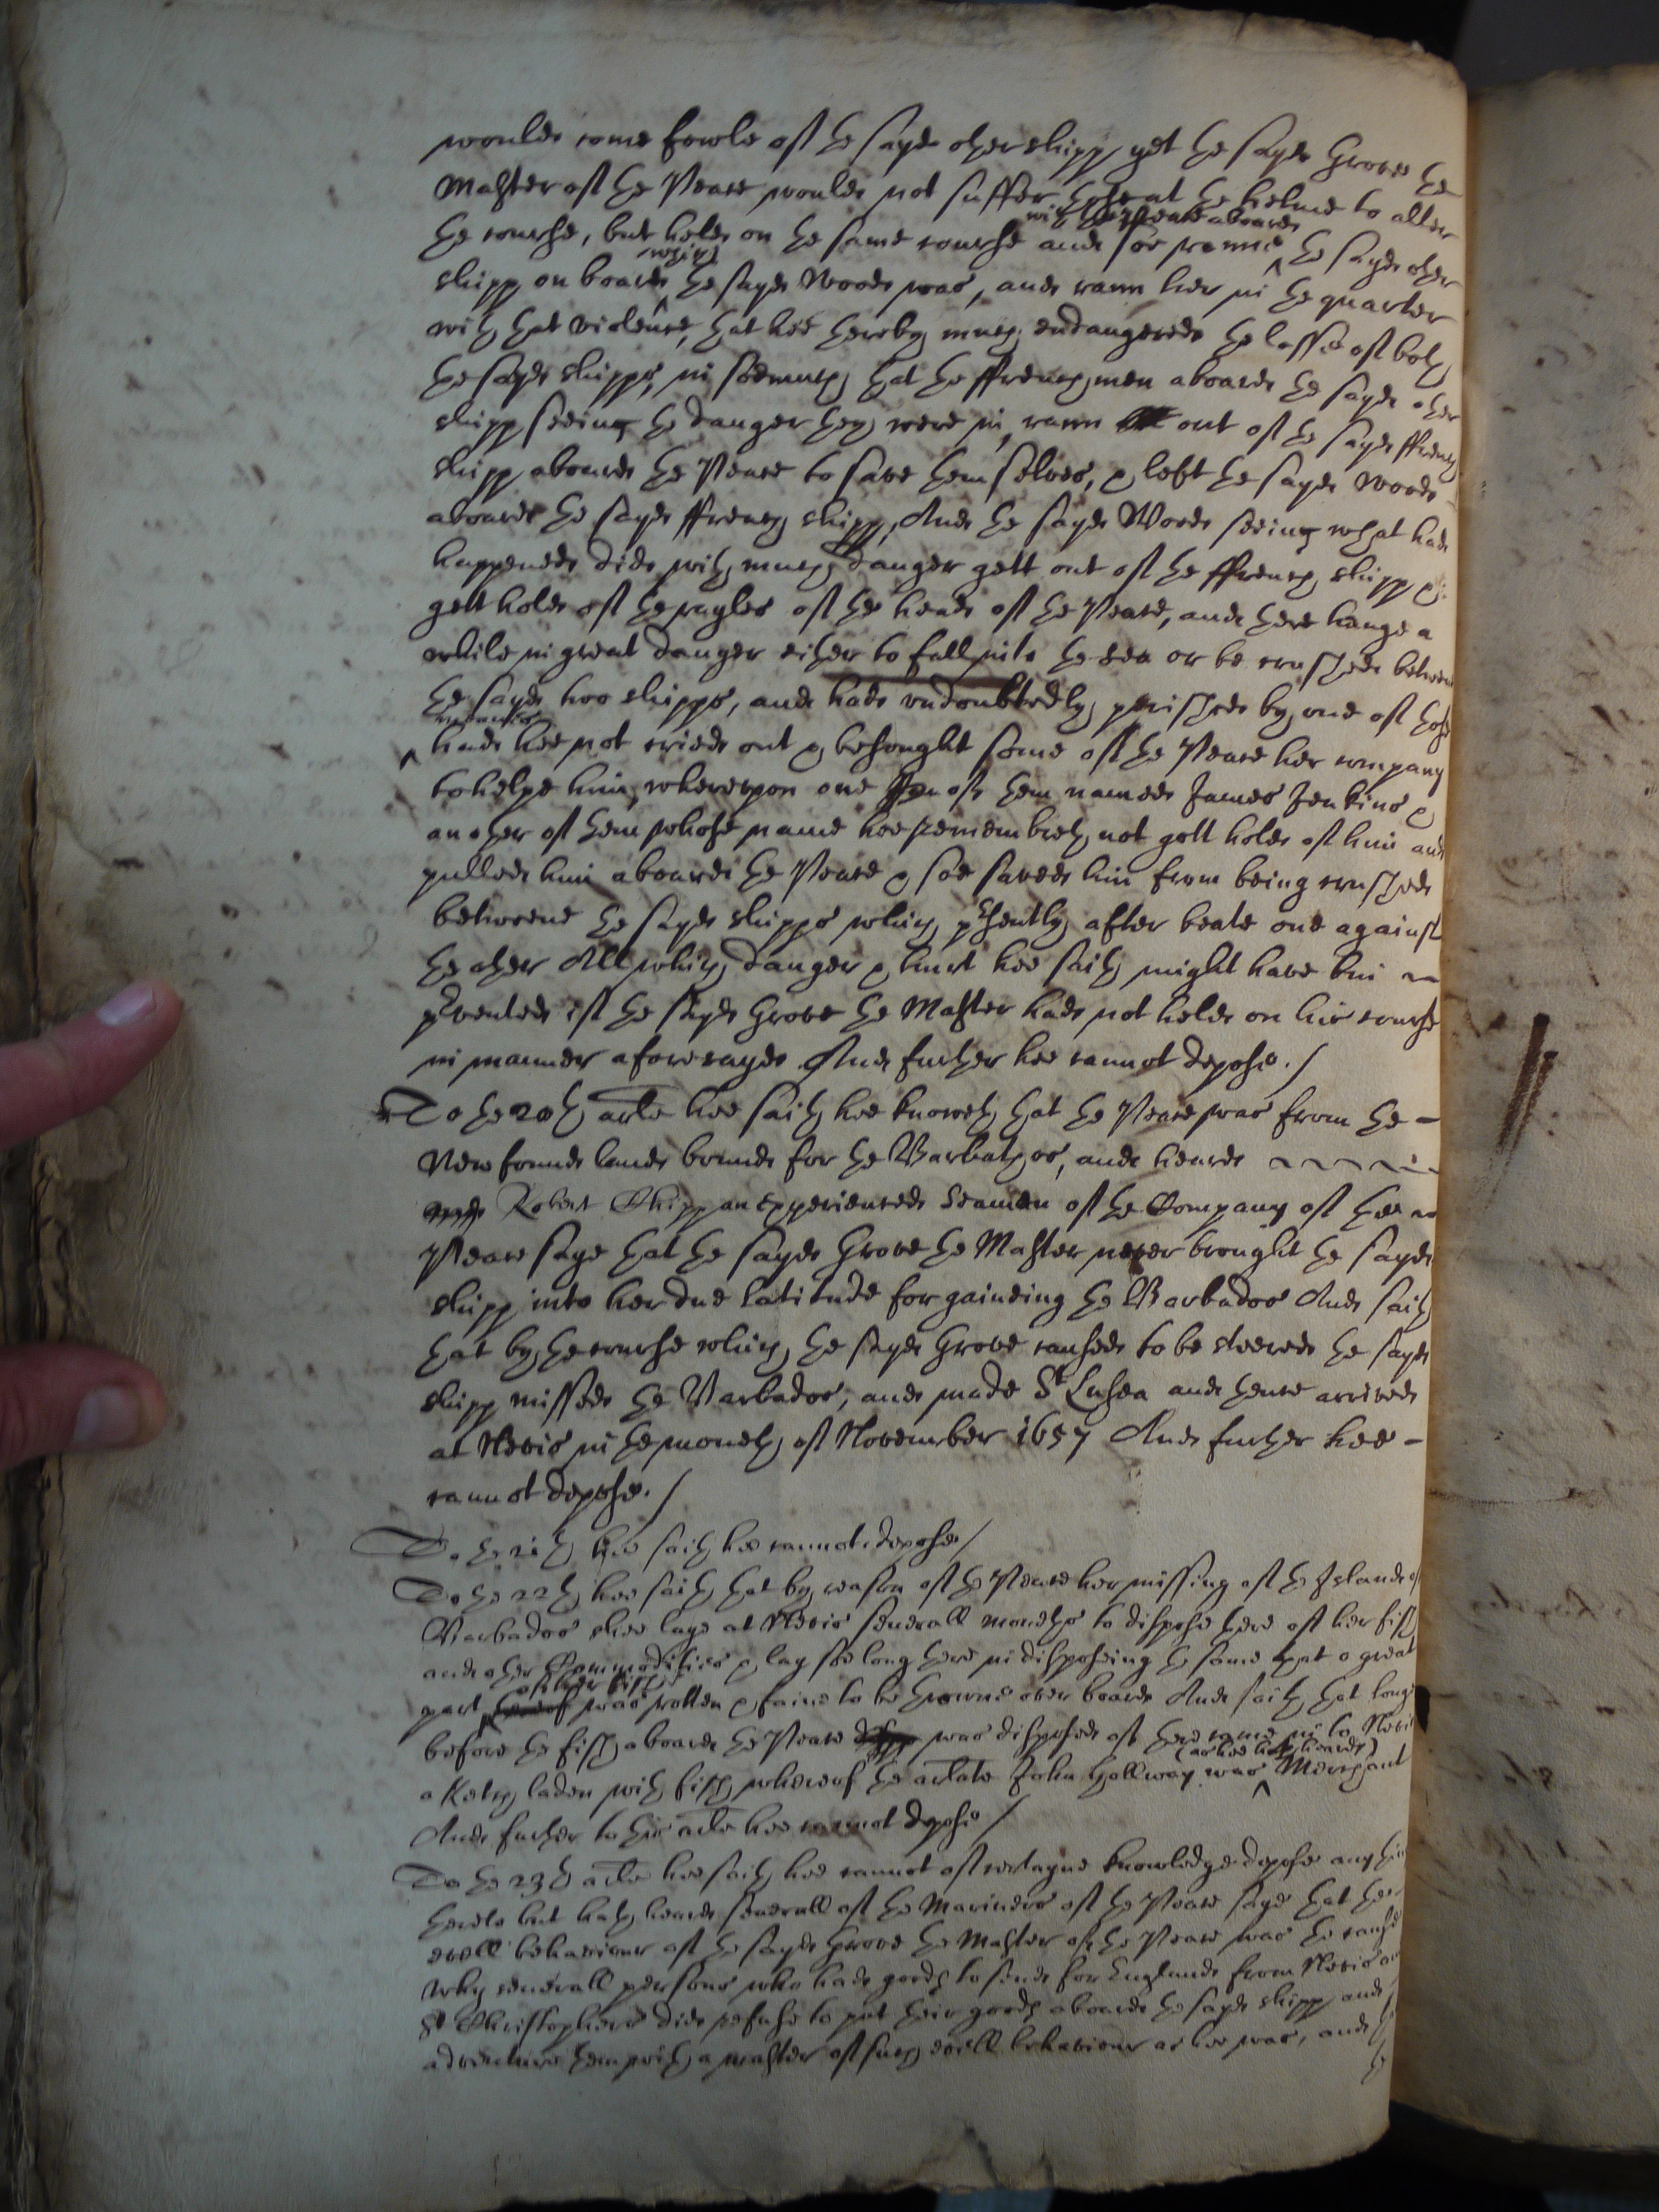 woulde come fowle of the sayde other shipp yet the sayde Grove the
Master of the Peace would not suffer those at the helme to alter
the course, but helde on the same course and soe runne ^with the Peace aboarde the sayde other
shipp on board ^which the sayde Woode was, and rann her in the quarter
with that violence, that hee thereby much endangered the losse of both
the sayde shipps, in soemuch that the ffrenchmen aboarde the sayde other
shipp seeing the danger they were in, rann out of the sayde ffrench
shipp aboarde the Peace to save themselves, & left the sayde Woode
aboarde the sayde ffrench shipp, And the sayde Woode seeing what had
happened did with much danger gett out of the ffrench shipp &
gett holde of the rayles of the heade of the Peace, and there hange a
while in great danger either to fall into the sea or be crushed betweene
the sayde two shipps, and had undoubtedly perished by one of those
^meanes had hee not cried out & besought some of the Peace her company
to helpe him, whereupon one of them named James Jenkins &
another of them whose name hee remembreth not gott holde of him and
pulled him aboarde the Peace & soe saved him from being crushed
betweene the sayde shipps which presently after beate one against
the other All which danger & hurt hee saith might have bin
prevented if the sayde Grove the Master had not helde on his course
in manner aforesayde And further hee cannot depose./
To the 20th arle hee saith hee knoweth that the Peace was from the -
Newfound lande bounde for the Barbathos, and hearde
Robert Shipp an experienced seaman of the Company of the
Peace saye that the sayde Grove the Master never brought the sayde
shipp into her due latitude for gaineing the Barbados And saith
that by the course which the sayde Grove caused to be steered the sayde
shipp missed the Barbados, and made St Lusea and thence arrived
at Nevis in the moneth of November 1657 And further hee -
cannot depose./
To the 21th hee saith hee cannot depose/
To the 22th hee saith that by reason of the Peace her missing of the Islande of
Barbados shee laye at Nevis severall moneths to dispose there of her fish
and other Commodities & lay soe long there in disposeing the same that a great
part ^of her fish was rotten & faine to be throwne over board And saith that longe
before the fish aboarde the Peace was disposed of there came in to Nevis
a Ketch laden with fish whereof the arlate John Hollway was ^(as hee hath hearde) Merchant
And further to this arle hee cannot depose/
To the 23th arle hee saith hee cannot of certayne knowledge depose any thing
hereto but hath hearde severall of the Mariners of the Peace saye that the
evill behaviour of the sayde Grove the Master of the Peace was the cause
why severall persons who had goods to sende for Englande from Nevis or
St Christophers did refuse to put their goods aboarde the sayde shipp and
adventure them with a master of such evill behaviour as hee was, and
the